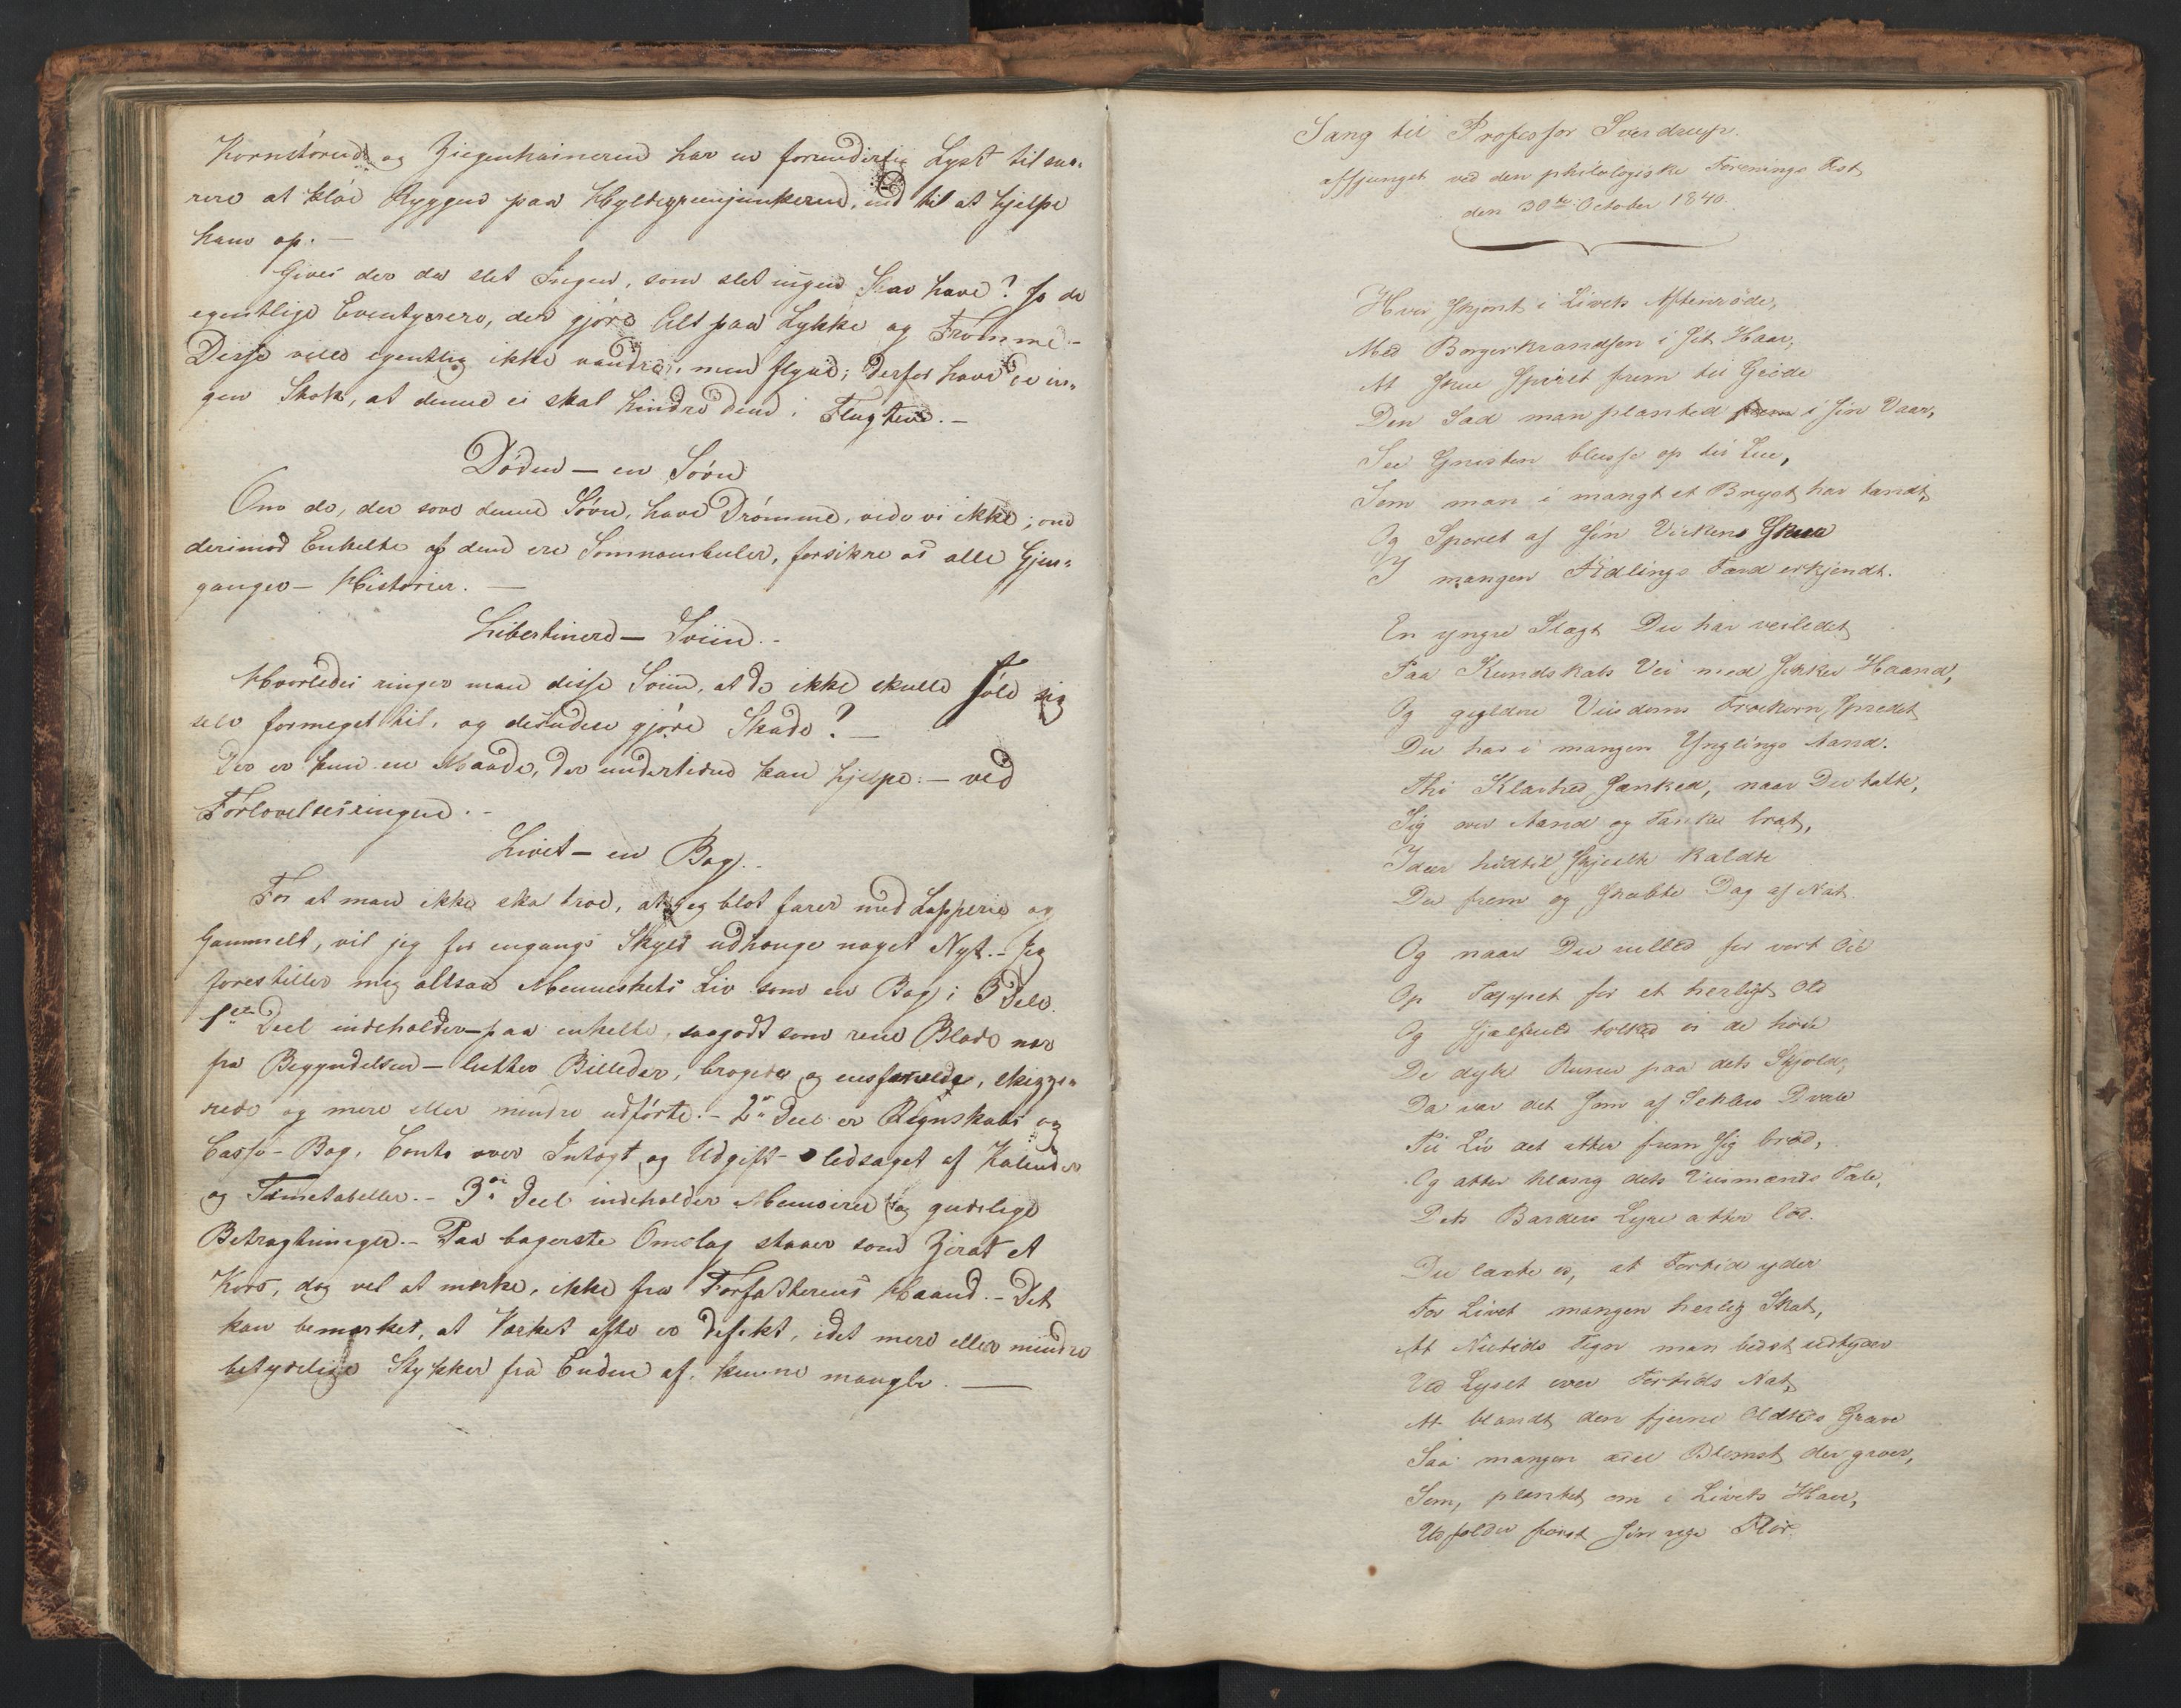 Kornstörene og Ziegenhainerne har en forunderlig Lyst til sna-
rere at klöe Ryggen paa Hyldegreenjunkerne, end til at hjelpe
ham op. —
Gives der da slet Ingen, som slet ingen Stav have? Jo de
egentlige Eventyrere, der gjöre Alt paa Lykke og Fromme. -
Disse ville egentlig ikke vandre, men flyve; derfor have de in-
gen Stok, at denne ei skal hindre dem i Flugten. —
Döden — en Sövn
Om de, der sove denne Sövn, have Drömme, vide vi ikke; om
derimod Enkelte af dem ere Somnambuler, forsikre os alle Gjen-
ganger-Historier. —
Libertinere — Sviin. -
Hvorledes ringer man disse Sviin, at de ikke skulle söle sig
selv formeget til, og desuden gjöre Skade? —
Der er kun een Maade, der undertiden kan hjelpe: — ved
Forlovelsesringen. -
Livet — en Bog. -
For at man ikke skal troe, at jeg blot farer med Lapperie og
Gammelt, vil jeg for engangs Skyld udhænge noget Nyt. - Jeg
forestiller mig altsaa Menneskets Liv som en Bog i 3 Dele.
1ste Deel indeholder — paa enkelte, saagodt som rene Blade nær
fra Begyndelsen — lutter Billeder, brogede og eensfarvede, skizze-
rede og mere eller mindre udförte. - 2den Deel er Regnskabs og
Casse-Bog, Conto over Indtægt og Udgift - ledsaget af Kalender
og Timetabeller. - 3die Deel indeholder Memoirer og gudelige
Betragtninger. - Paa bagerste Omslag staaer som Zirat et
Kors, dog vel at mærke, ikke fra Forfatterens Haand. - Det
kan bemærkes, at Værket ofte er defekt, idet mere eller mindre
betydelige Stykker fra Enden af kunne mangle. —
Sang til Professor Sverdrup.
afsjunget ved den philologiske Forenings Fest
den 30te October 1840.
Hvor skjønt i Livets Aftenrøde,
Med Borgerkrandsen i sit Haar,
At skue spiret frem til Grøde
Den Sæd man planted i sin Vaar,
See Gnisten blusse op til Lue,
Som man i mangt et Bryst har tændt,
Og Sporet af sin Virken skue
I mangen Ædlings Færd erkjendt.
En yngre Slægt Du har veiledet
Paa Kundskabs Vei med sikker Haand,
Og gyldne Viisdoms Frøekorn spredet
Du har i mangen Ynglings Aand.
Thi Klarhed sænked, naar Du talte,
Sig over Aand og Tanke brat,
Ideer hidtil skjulte kaldte
Du frem og skabte Dag af Nat.
Og naar Du rulled for vort Øie
Op Tæppet for et herligt Old
Og sjælfuld tolked os de høie
De dybe Runer paa dets Skjold,
Da var det som af Seklers Dvale
Til Liv det atter frem sig brød,
Og atter klang dets Viismænds Tale,
Dets Barders Lyre atter lød.
Du lærte os, at Fortid yder
For Livet mangen herlig Skat,
At Nutids Tegn man bedst udtyder
Ved Lyset over Fortids Nat,
At blandt den fjerne Oldtids Grave
Saa mangen ædel Blomst der groer,
Som, plantet om i Livets Have,
Udfolder først sin rige Flor.